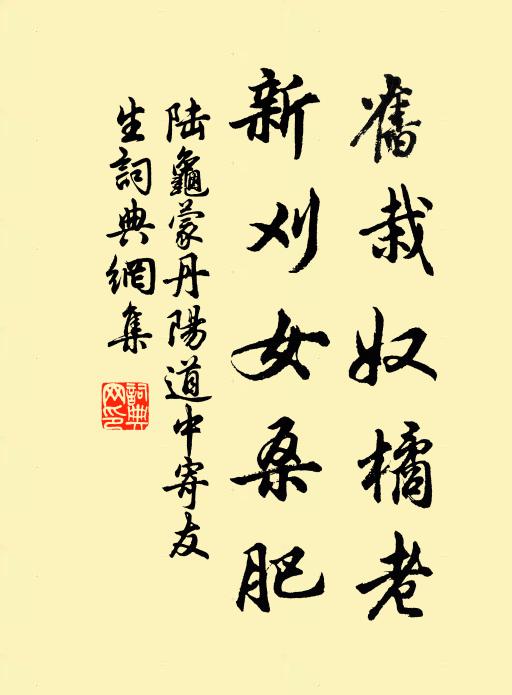 舊栽奴橘老
新刈女桑肥
陆龜蒙丹陽道中寄友
生詞典網集
詞典
网印